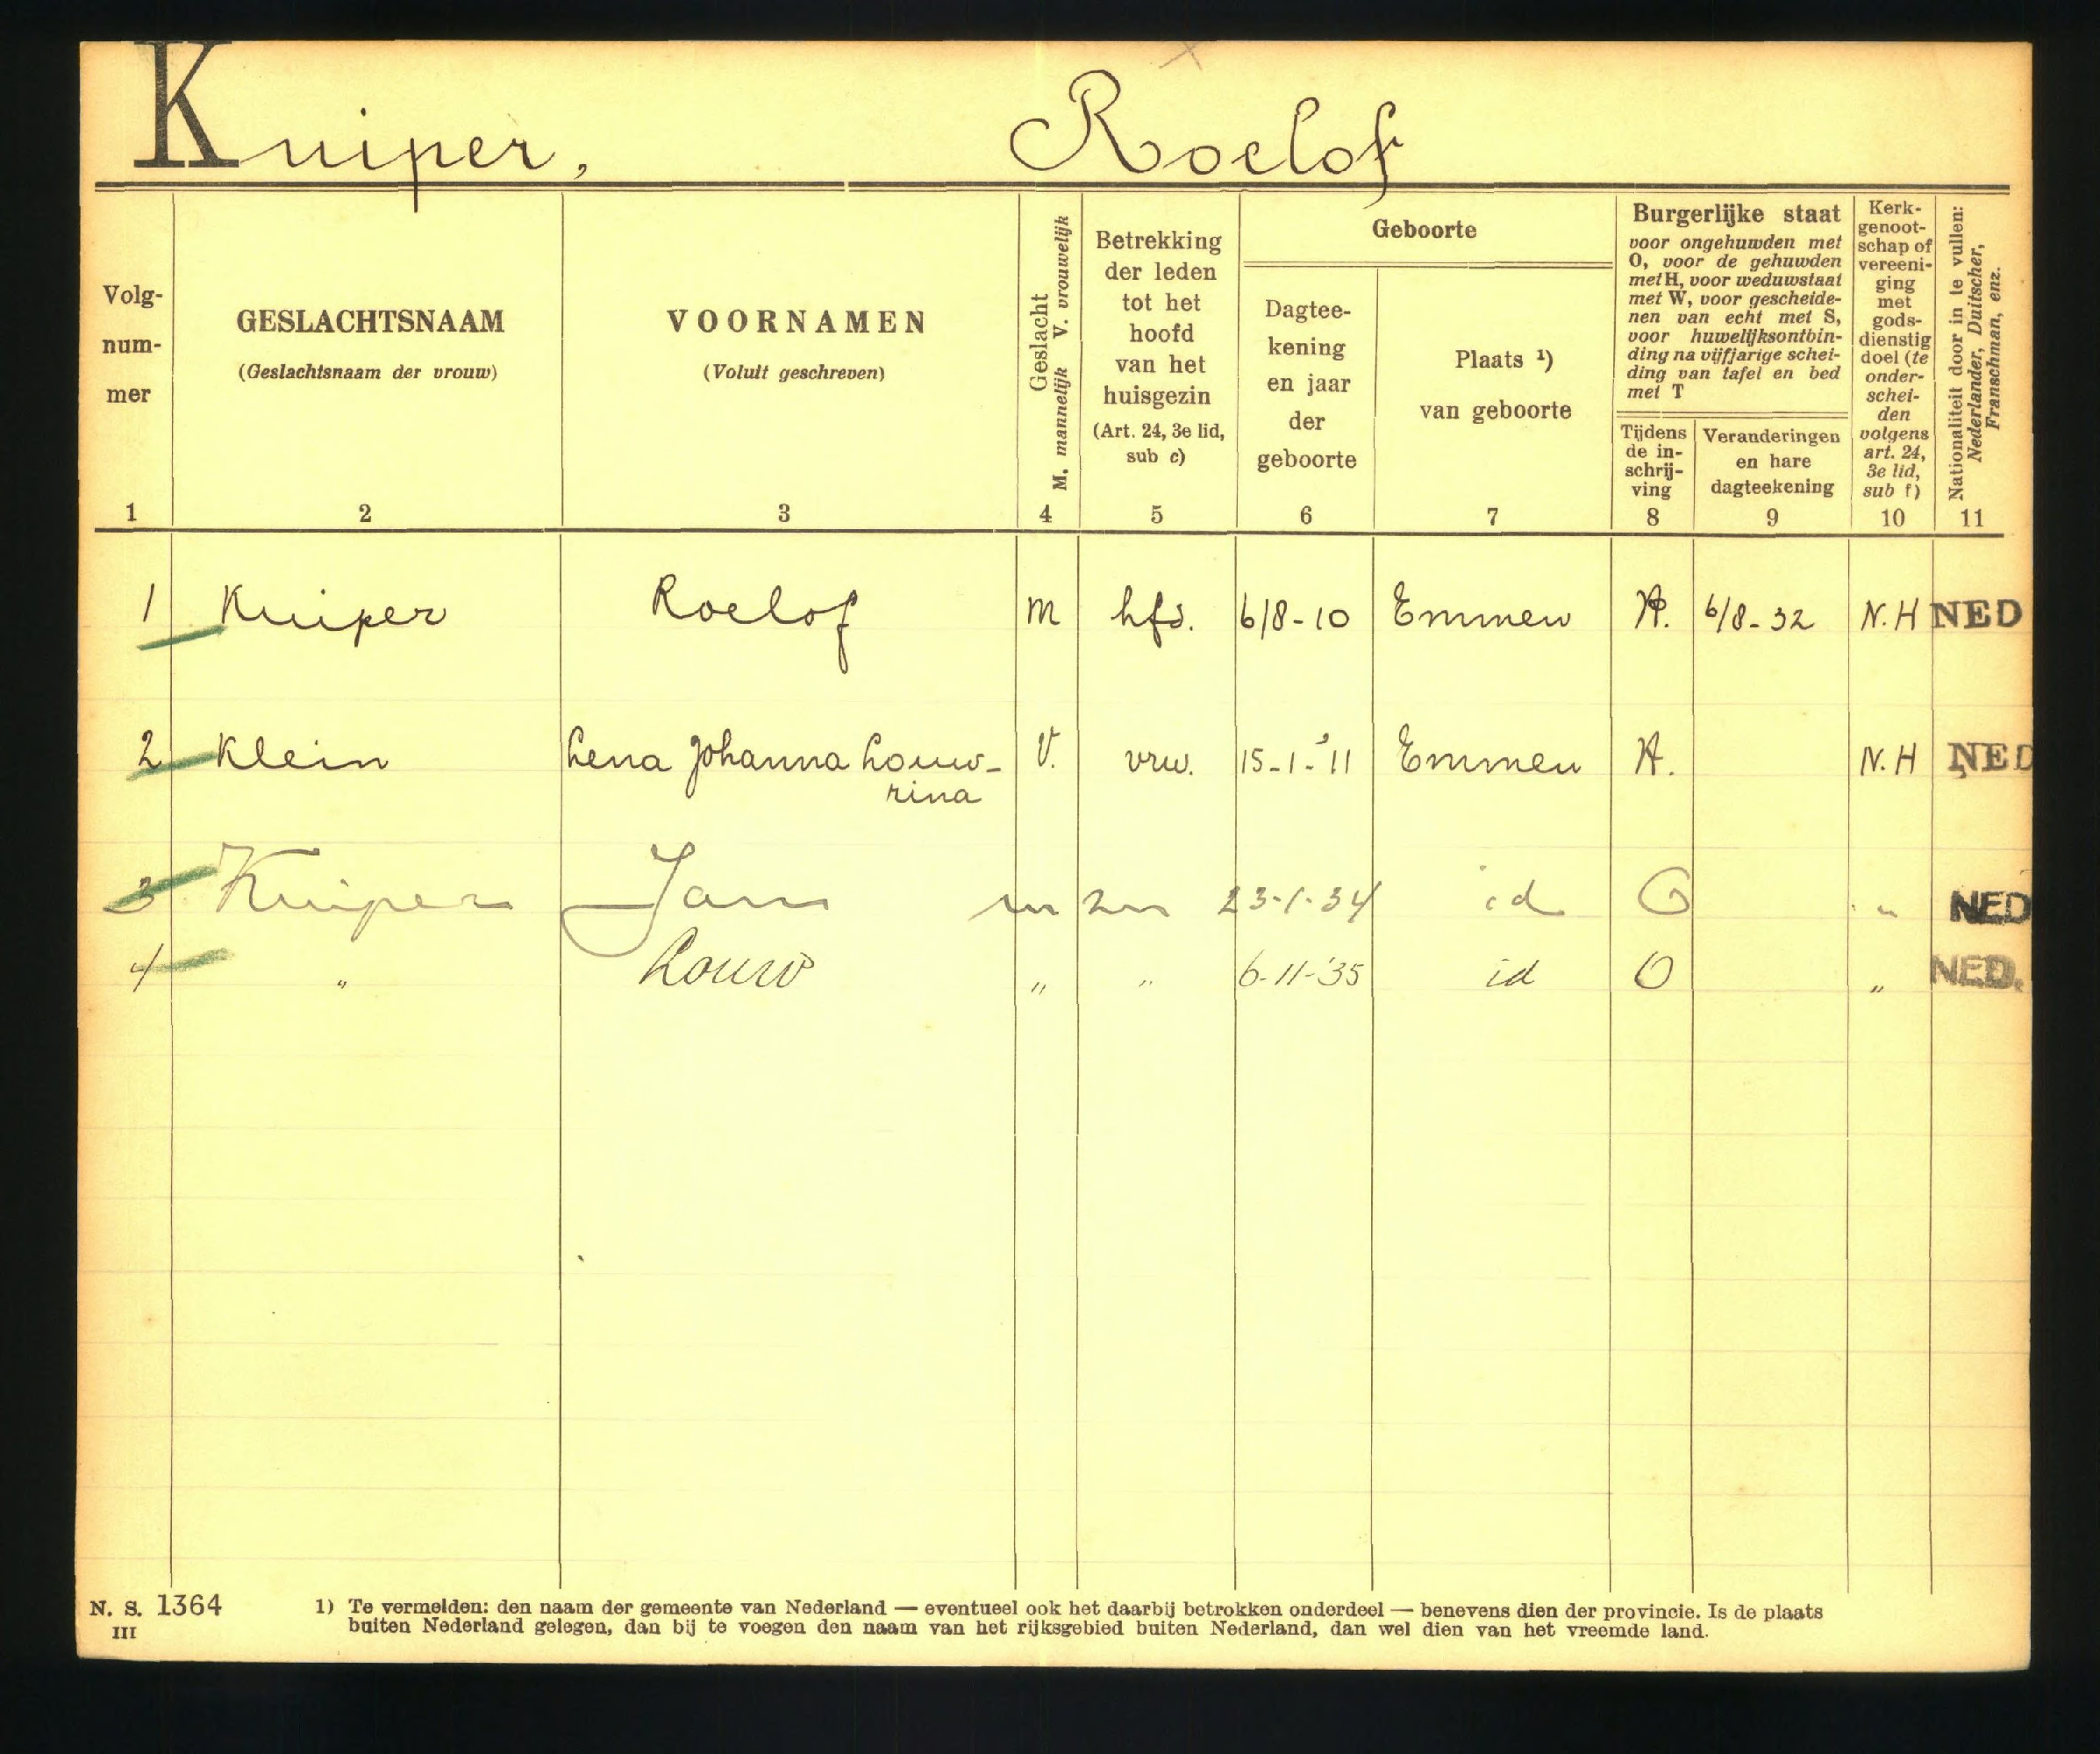 Kuiper, Roelof
Volg-
num-
mer
1
GESLACHTSNAAM
(Geslachtsnaam der vrouw)
2
VOORNAMEN
(Voluit geschreven)
3
Geslacht
M. mannelijk V. vrouwelijk
4
Betrekking
der leden
tot het
hoofd
van het
huisgezin
(Art. 24, 3e lid,
sub c)
5
Geboorte
Dagtee-
kening
en jaar
der
geboorte
6
Plaats ¹)
van geboorte
7
Burgerlijke staat
voor ongehuwden met
O, voor de gehuwden
met H, voor weduwstaat
met W, voor gescheide-
nen van echt met S,
voor huwelijksontbin-
ding na vijfjarige schei-
ding van tafel en bed
met T
Tijdens
de in-
schrij-
ving
8
Veranderingen
en hare
dagteekening
9
Kerk-
genoot-
schap of
vereeni-
ging
met
gods-
dienstig
doel (te
onder-
schei-
den
volgens
art. 24,
3e lid,
sub f)
10
Nationaliteit door in te vullen:
Nederlander, Duitscher,
Franschman, enz.
11
1 Kuiper Roelof M hfd. 6/8-10 Emmen H. 6/8-32 N.H NED
2 Klein Lena Johanna Louw- V. vrw. 15-1-'11 Emmen H. N.H NED
rina
3 Kuiper Jan m zn 23-1-34 id O " NED
4 " Louw " " 6-11-'35 id O " NED.
N. S. 1364
III
1) Te vermelden: den naam der gemeente van Nederland — eventueel ook het daarbij betrokken onderdeel — benevens dien der provincie. Is de plaats
buiten Nederland gelegen, dan bij te voegen den naam van het rijksgebied buiten Nederland, dan wel dien van het vreemde land.